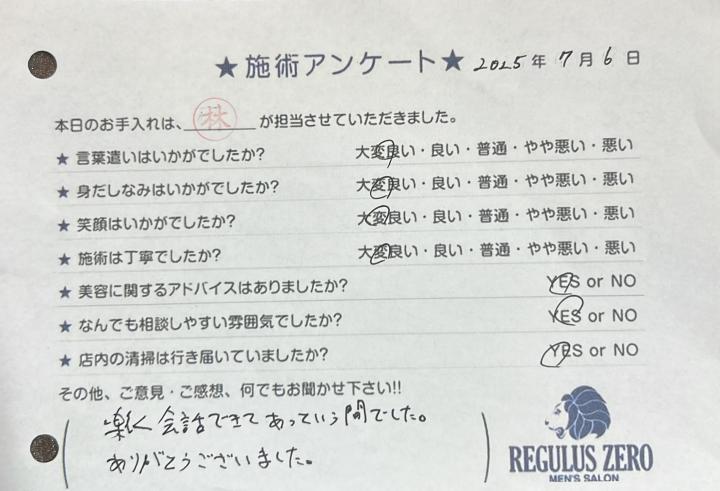 ★施術アンケート★ 2025年7月6日
本日のお手入れは、林が担当させていただきました。
★ 言葉遣いはいかがでしたか? 大変良い・良い・普通・やや悪い・悪い
★ 身だしなみはいかがでしたか? 大変良い・良い・普通・やや悪い・悪い
★ 笑顔はいかがでしたか? 大変良い・良い・普通・やや悪い・悪い
★ 施術は丁寧でしたか? 大変良い・良い・普通・やや悪い・悪い
★ 美容に関するアドバイスはありましたか? YES or NO
★ なんでも相談しやすい雰囲気でしたか? YES or NO
★ 店内の清掃は行き届いていましたか? YES or NO
その他、ご意見・ご感想、何でもお聞かせ下さい!!
楽しく会話できてあっという間でした。
ありがとうございました。
REGULUS ZERO
MEN'S SALON